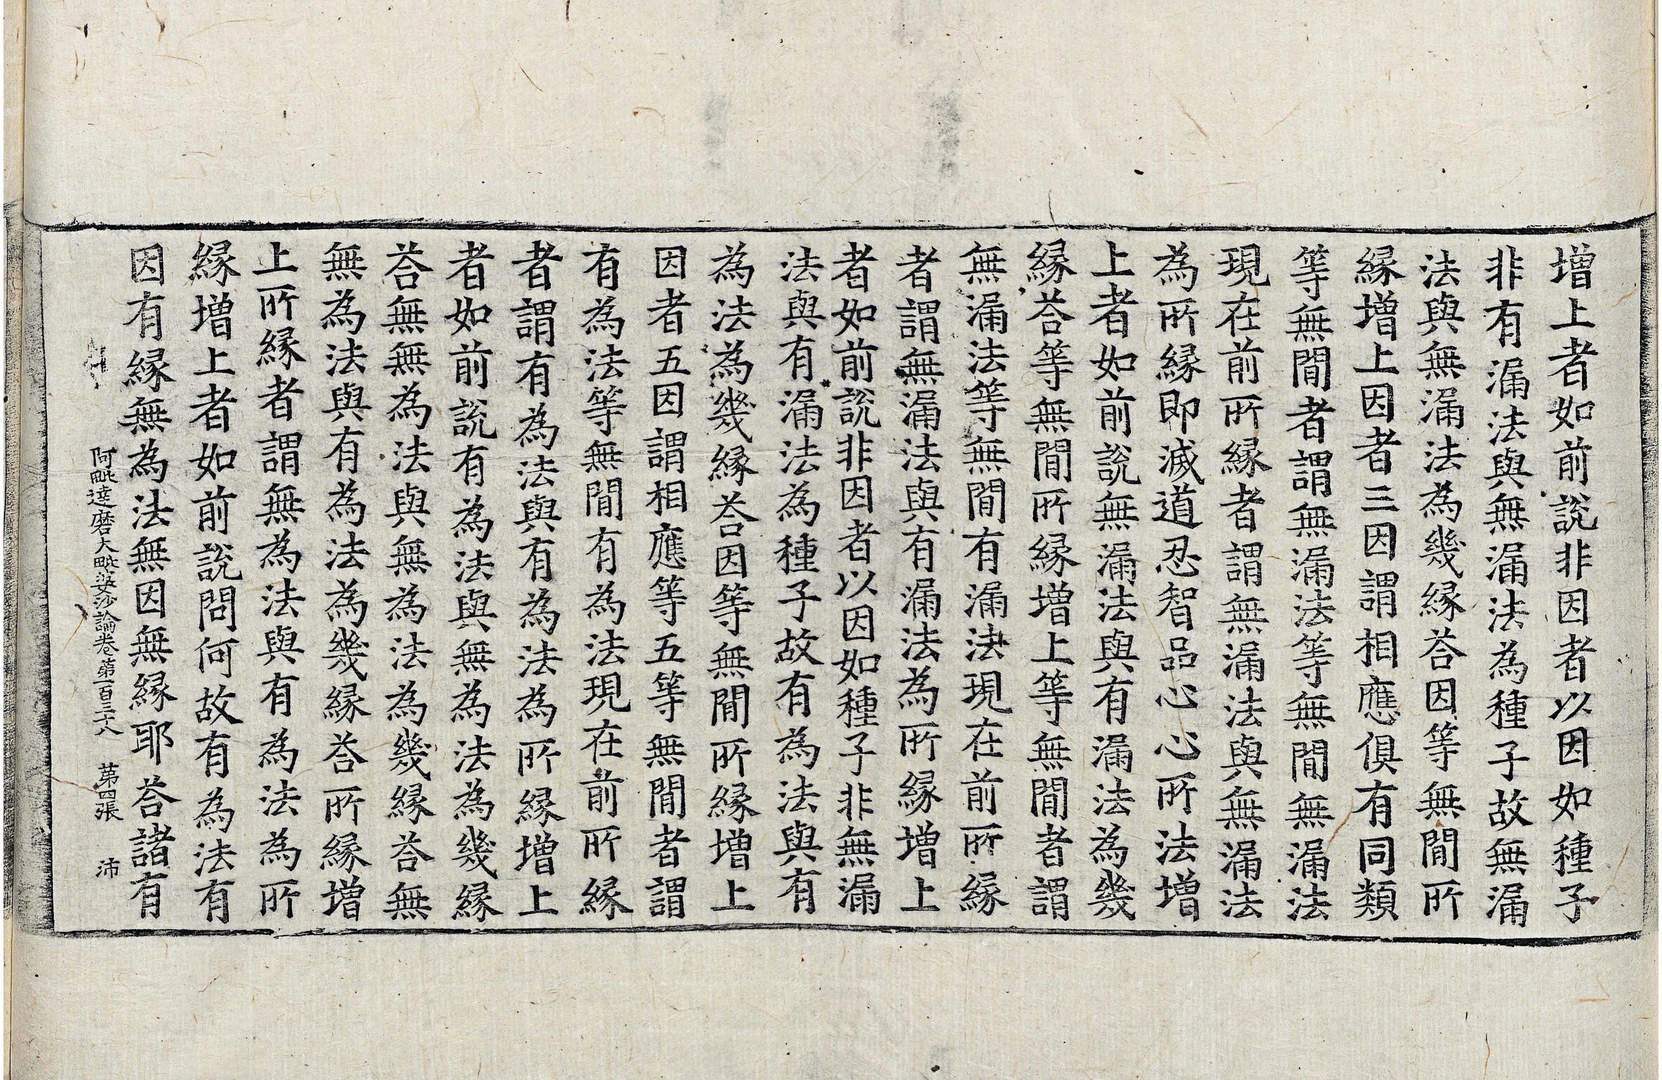 增上者如前說非因者以因如種子
非有漏法與無漏法為種子故無漏
法與無漏法為幾緣荅因等無間所
緣增上因者三因謂相應俱有同類
等無間者謂無漏法等無間無漏法
現在前所緣者謂無漏法與無漏法
為所緣即滅道忍智品心心所法增
上者如前說無漏法與有漏法為幾
緣荅等無間所緣增上等無間者謂
無漏法等無間有漏法現在前所緣
者謂無漏法與有漏法為所緣增上
者如前說非因者以因如種子非無漏
法與有漏法為種子故有為法與有
為法為幾緣荅因等無間所緣增上
因者五因謂相應等五等無間者謂
有為法等無間有為法現在前所緣
者謂有為法與有為法為所緣增上
者如前說有為法與無為法為幾緣
荅無無為法與無為法為幾緣荅無
無為法與有為法為幾緣荅所緣增
上所緣者謂無為法與有為法為所
緣增上者如前說問何故有為法有
因有緣無為法無因無緣耶荅諸有
阿毗達磨大毗婆沙論卷第一百三十六 第四張 沛